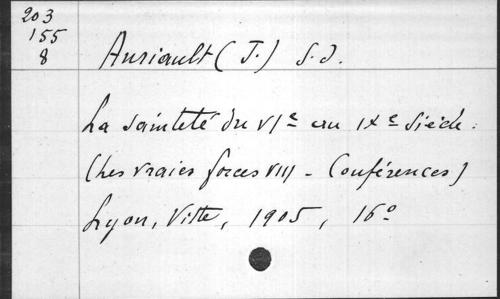 203
155
8
Auriault (J.) S.J.
La sainteté du VIe au IXe siècle :
(Les vraies forces VIII - Conférences)
Lyon, Vitte, 1905, 16°